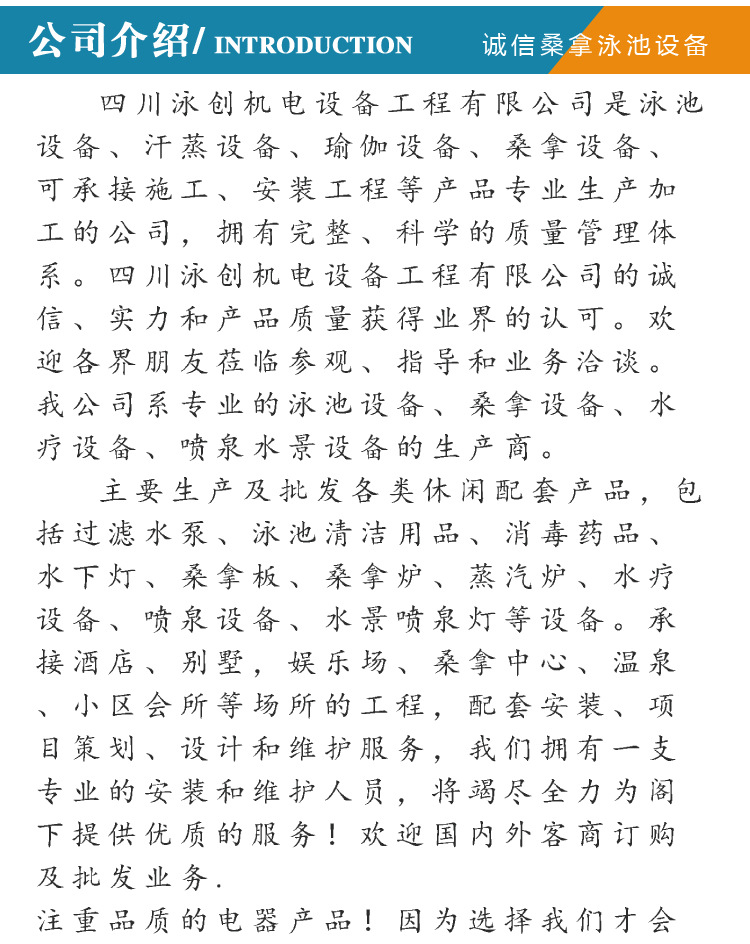 公司介绍/ INTRODUCTION
诚信桑拿泳池设备
四川泳创机电设备工程有限公司是泳池
设备、汗蒸设备、瑜伽设备、桑拿设备、
可承接施工、安装工程等产品专业生产加
工的公司，拥有完整、科学的质量管理体
系。四川泳创机电设备工程有限公司的诚
信、实力和产品质量获得业界的认可。欢
迎各界朋友莅临参观、指导和业务洽谈。
我公司系专业的泳池设备、桑拿设备、水
疗设备、喷泉水景设备的生产商。
主要生产及批发各类休闲配套产品，包
括过滤水泵、泳池清洁用品、消毒药品、
水下灯、桑拿板、桑拿炉、蒸汽炉、水疗
设备、喷泉设备、水景喷泉灯等设备。承
接酒店、别墅，娱乐场、桑拿中心、温泉
、小区会所等场所的工程，配套安装、项
目策划、设计和维护服务，我们拥有一支
专业的安装和维护人员，将竭尽全力为阁
下提供优质的服务！欢迎国内外客商订购
及批发业务.
注重品质的电器产品！因为选择我们才会